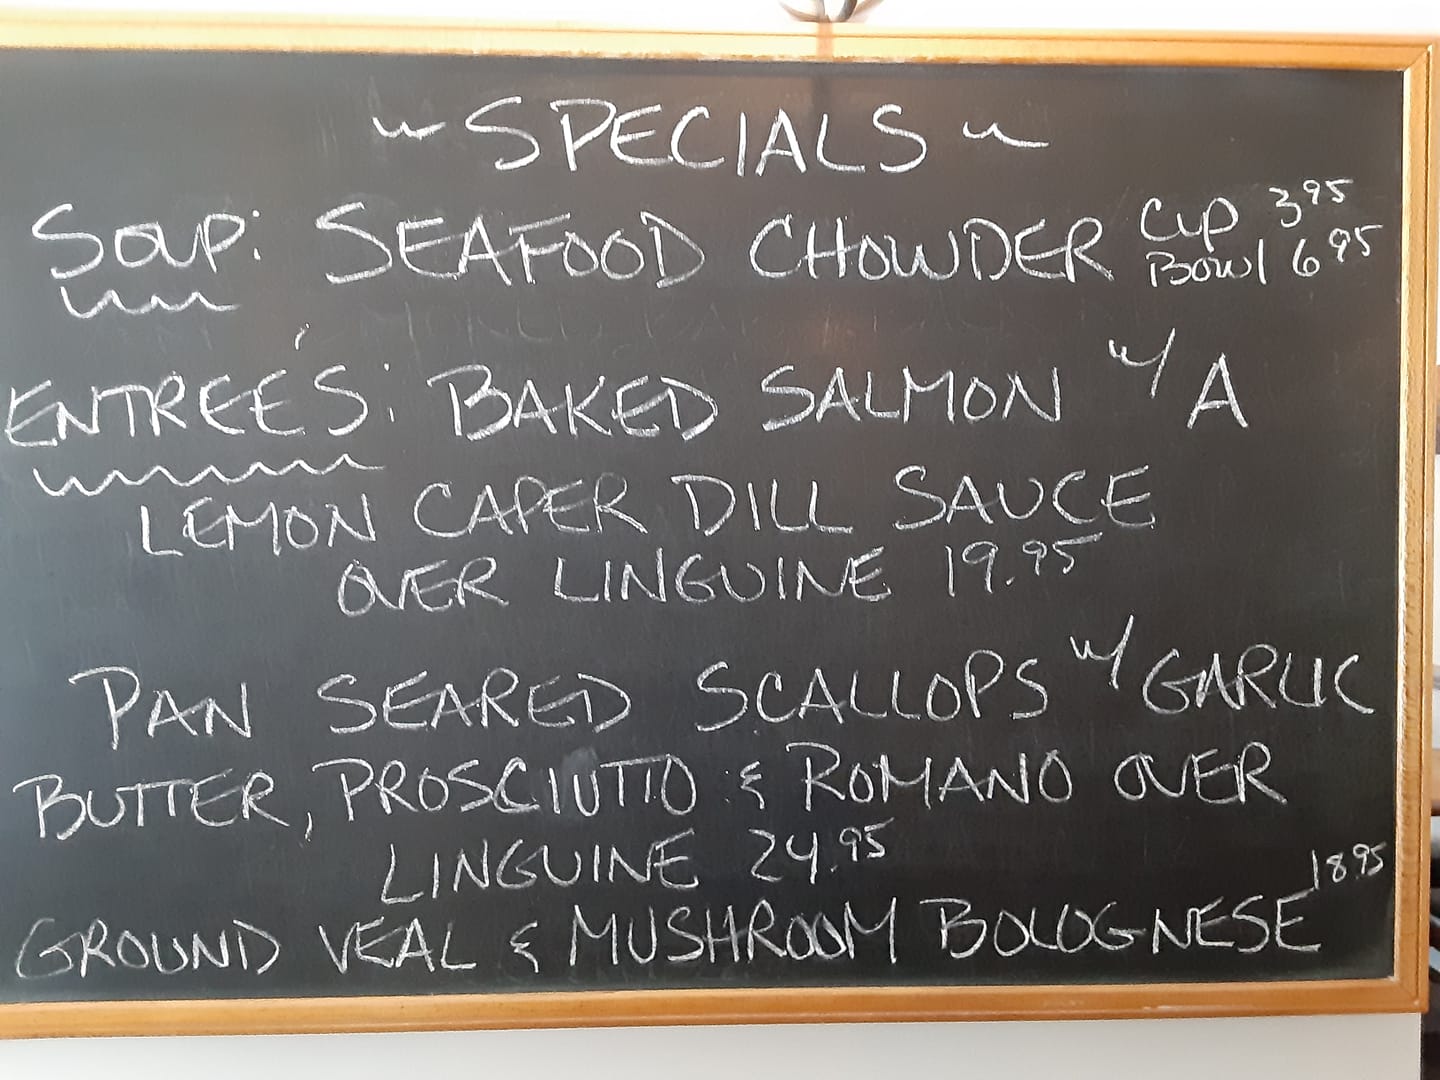 ~SPECIALS~
SOUP: SEAFOOD CHOWDER CUP 3.95
BOWL 6.95
ENTREÉS: BAKED SALMON w/ A
LEMON CAPER DILL SAUCE
OVER LINGUINE 19.95
PAN SEARED SCALLOPS w/ GARLIC
BUTTER, PROSCIUTTO & ROMANO OVER
LINGUINE 24.95
GROUND VEAL & MUSHROOM BOLOGNESE 18.95